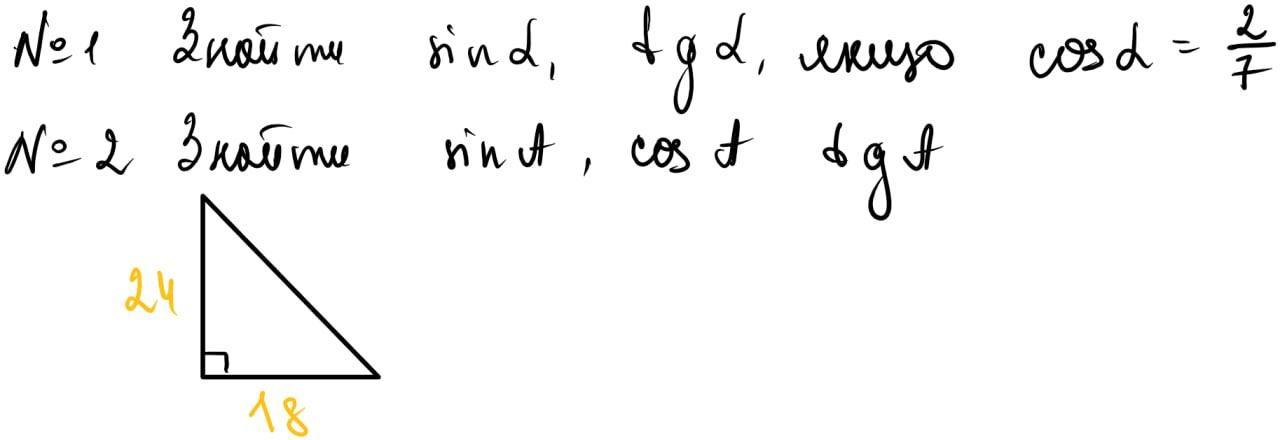 №1 Знайти sin α, tg α, якщо cos α = 2/7
№2 Знайти sin A, cos A tg A
24
18